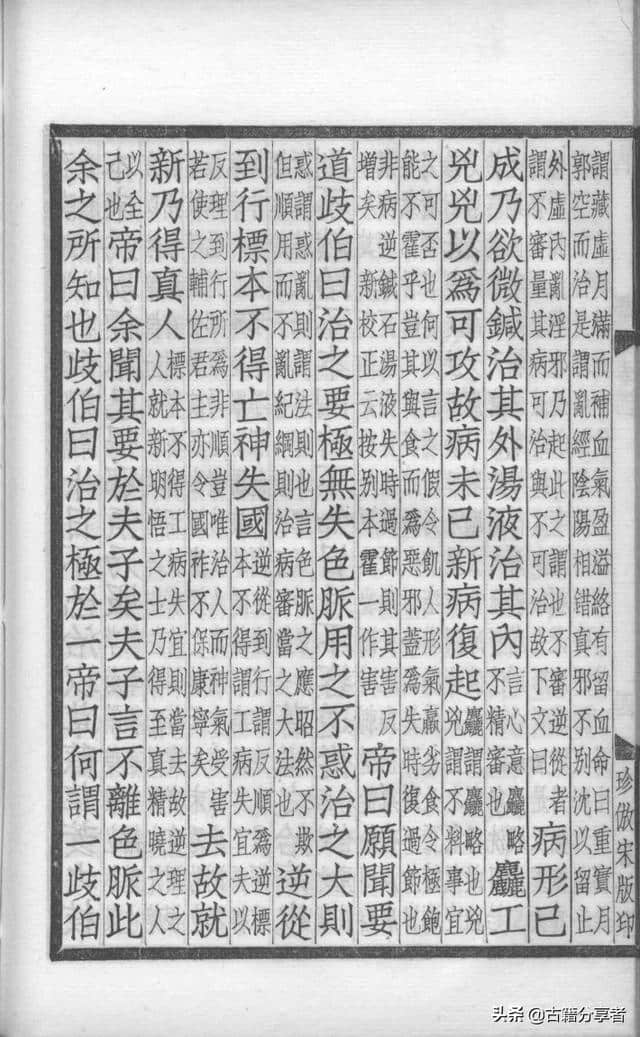 珍倣宋版印
謂藏虛月滿而補血氣盈溢絡有留血命曰重實月
郭空而治是謂亂經陰陽相錯真邪不別沈以留止
外虛內亂淫邪乃起此之謂也不審逆從者
謂不審量其病可治與不可治故下文曰
病形已
成乃欲微鍼治其外湯液治其內
言心意麤略
不精審也
麤工
兇兇以爲可攻故病未已新病復起
麤謂麤略也兇
兇謂不料事宜
之可否也何以言之假令飢人形氣羸劣食令極飽
能不霍乎豈其與食而爲惡邪蓋爲失時復過節也
非病逆鍼石湯液失時過節則其害反
增矣新校正云按別本霍一作害
帝曰願聞要
道歧伯曰治之要極無失色脈用之不惑治之大則
惑謂惑亂則謂法則也言色脈之應昭然不欺
但順用而不亂紀綱則治病審當之大法也
逆從
到行標本不得亡神失國
逆從到行謂反順爲逆標
本不得謂工病失宜夫以
反理到行所爲非順豈唯治人而神氣受害
若使之輔佐君主亦令國祚不保康寧矣
去故就
新乃得真人
標本不得工病失宜則當去故逆理之
人就新明悟之士乃得至真精曉之人
以全
己也
帝曰余聞其要於夫子矣夫子言不離色脈此
余之所知也歧伯曰治之極於一帝曰何謂一歧伯
头条 @古籍分享者